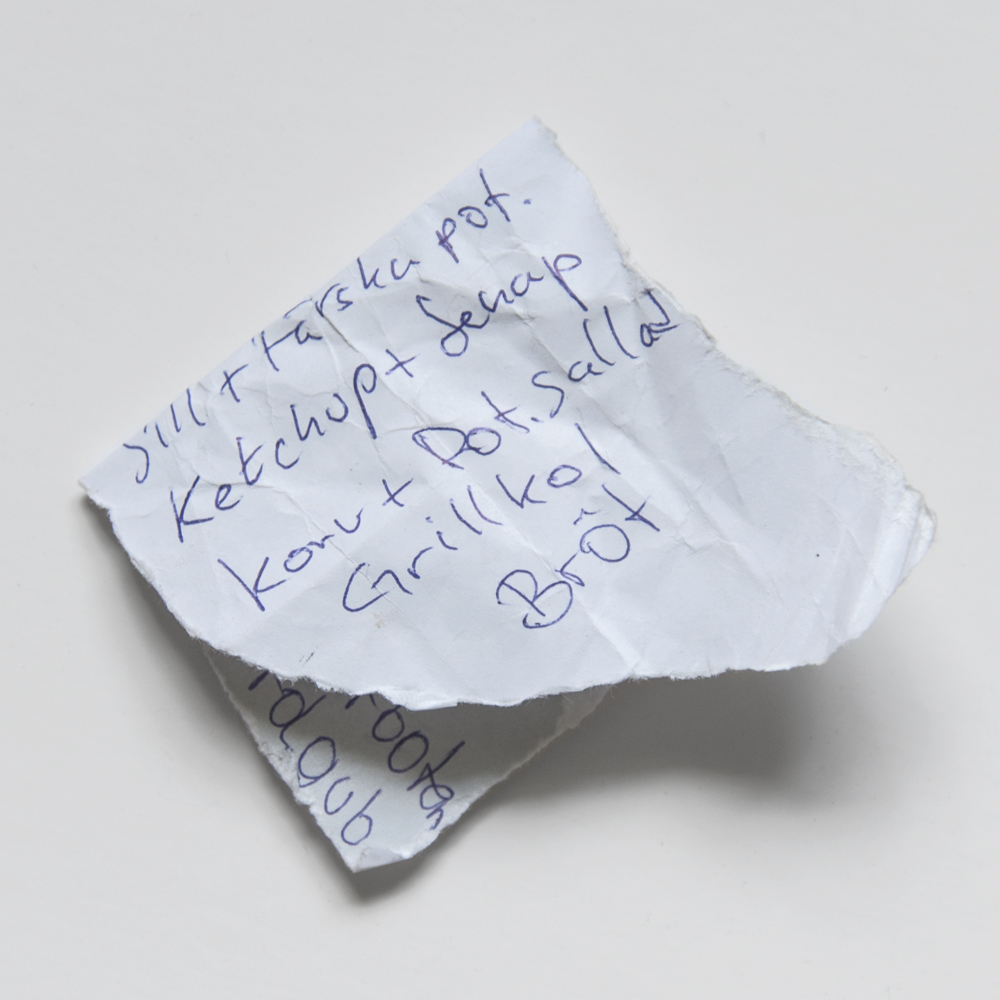 Sill + färska pot.
Ketchup + Senap
Korv + Pot. Sallad
Grillkol
Bröt